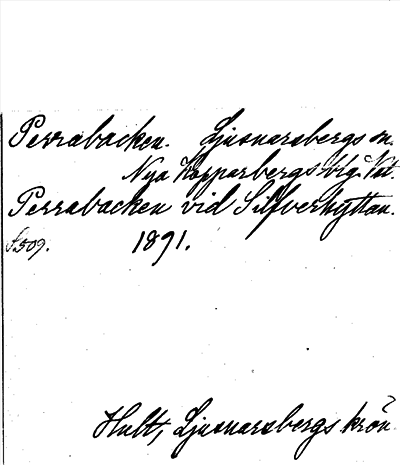 Perrabacken. Ljusnarsbergs sn.
Nya Kopparbergs blg. Vst.
Perrabacken vid Silfverhyttan.
s. 509. 1891.
Hult, Ljusnarsbergs krön.